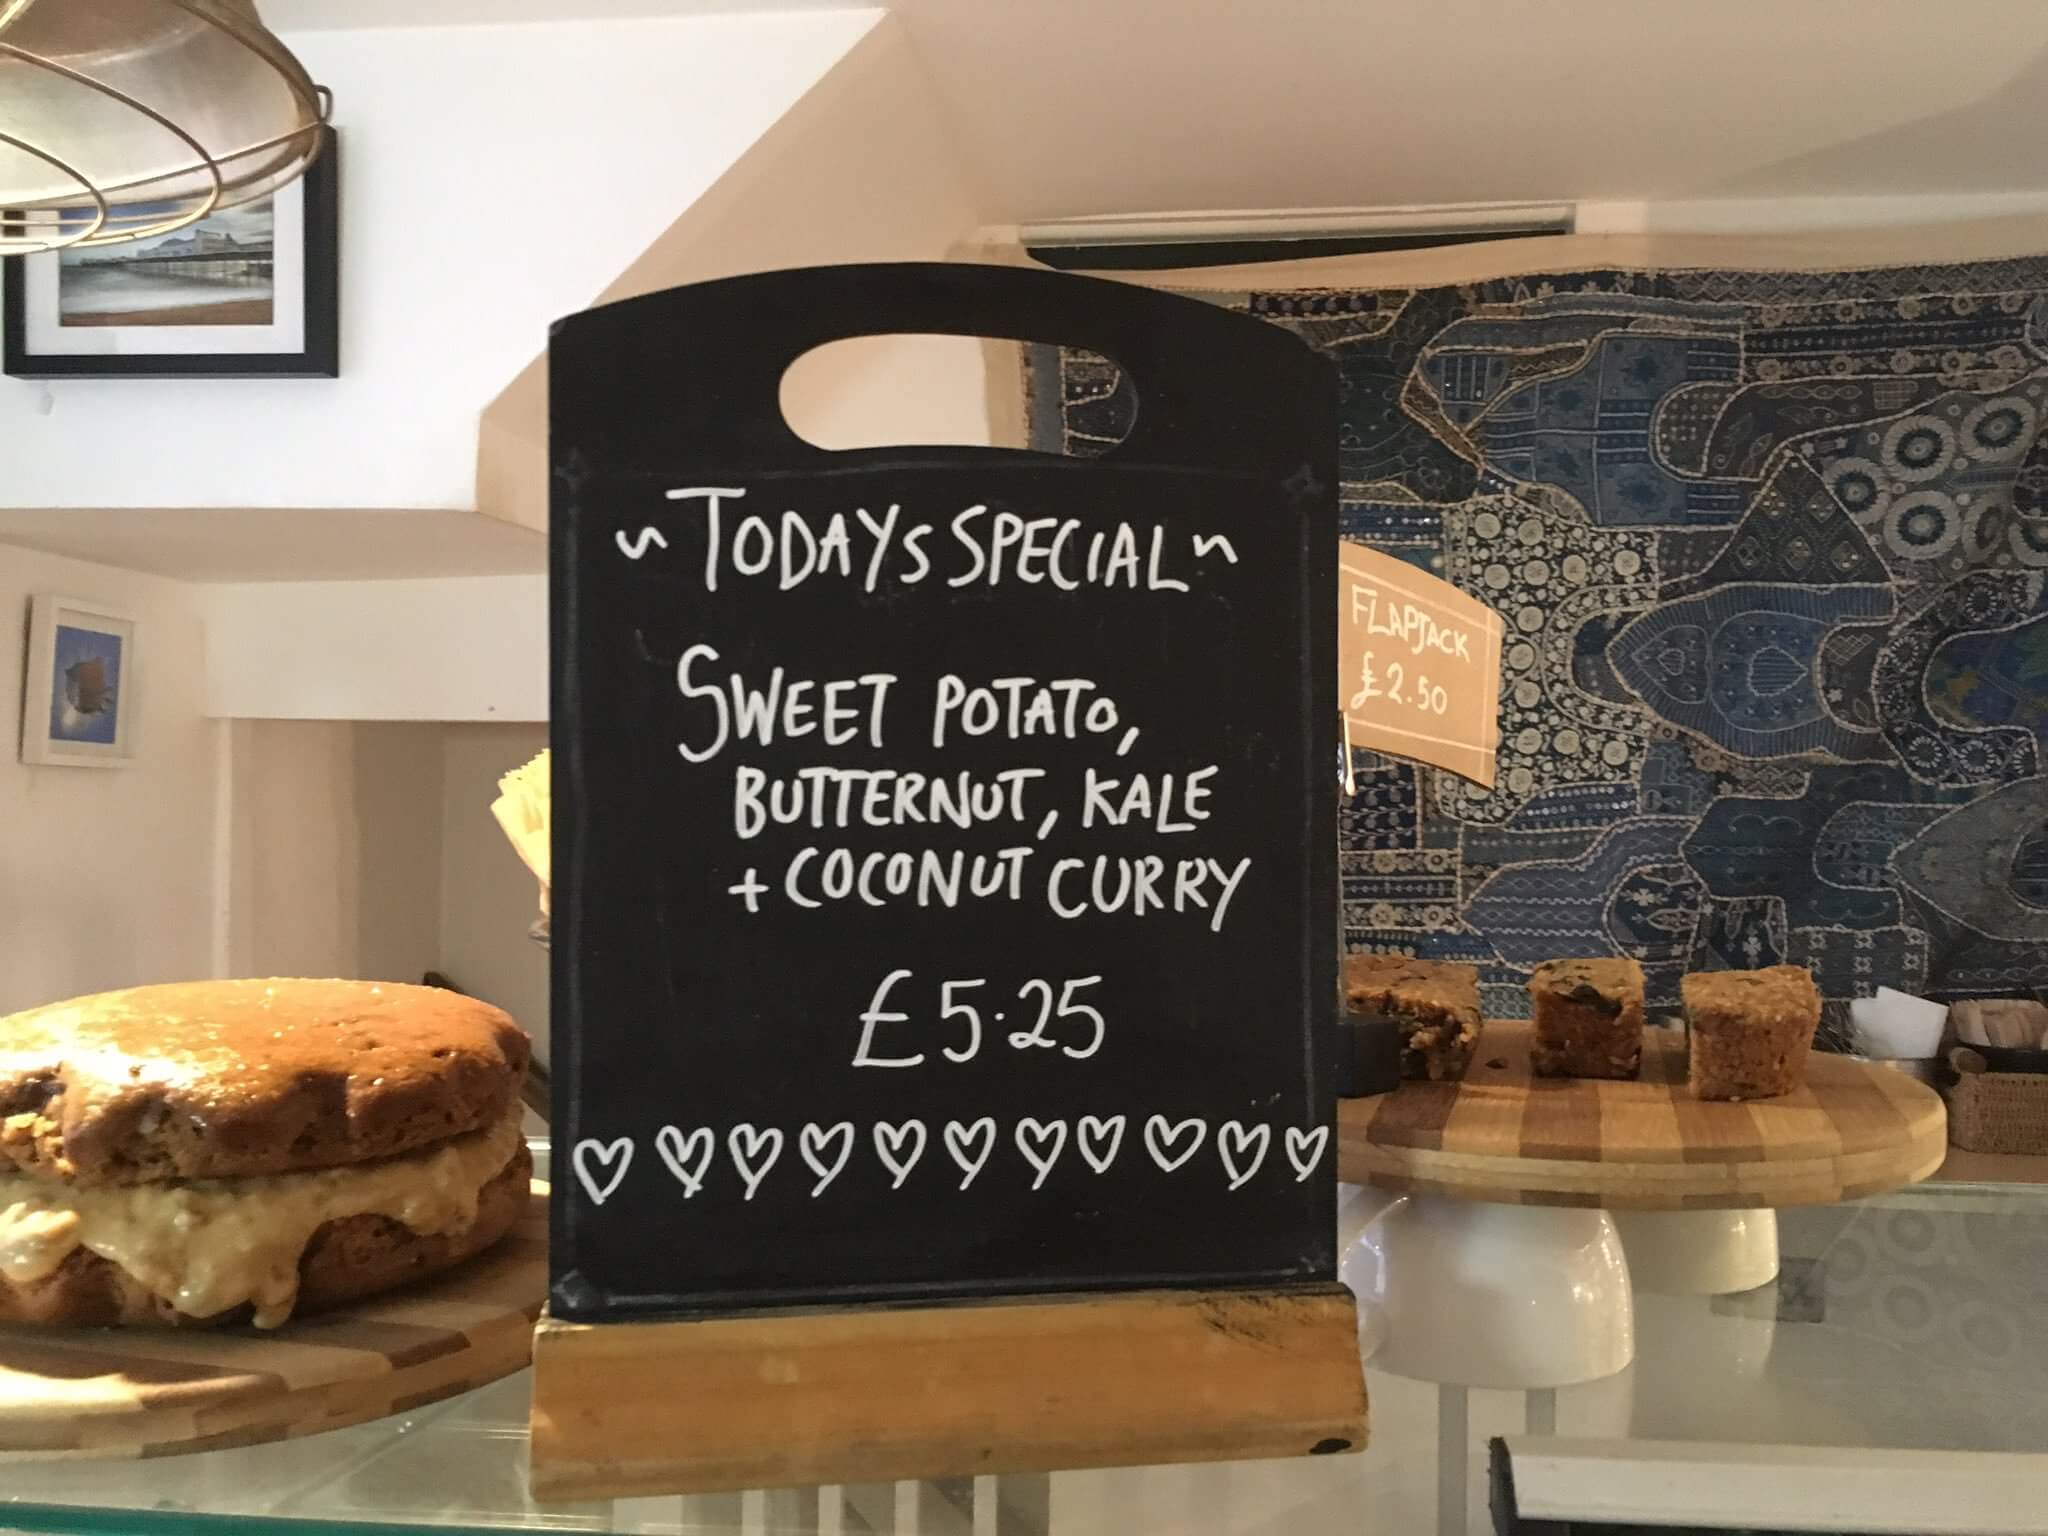 ~ TODAYS SPECIAL ~
SWEET POTATO,
BUTTERNUT, KALE
+ COCONUT CURRY
£5.25
FLAPJACK
£2.50